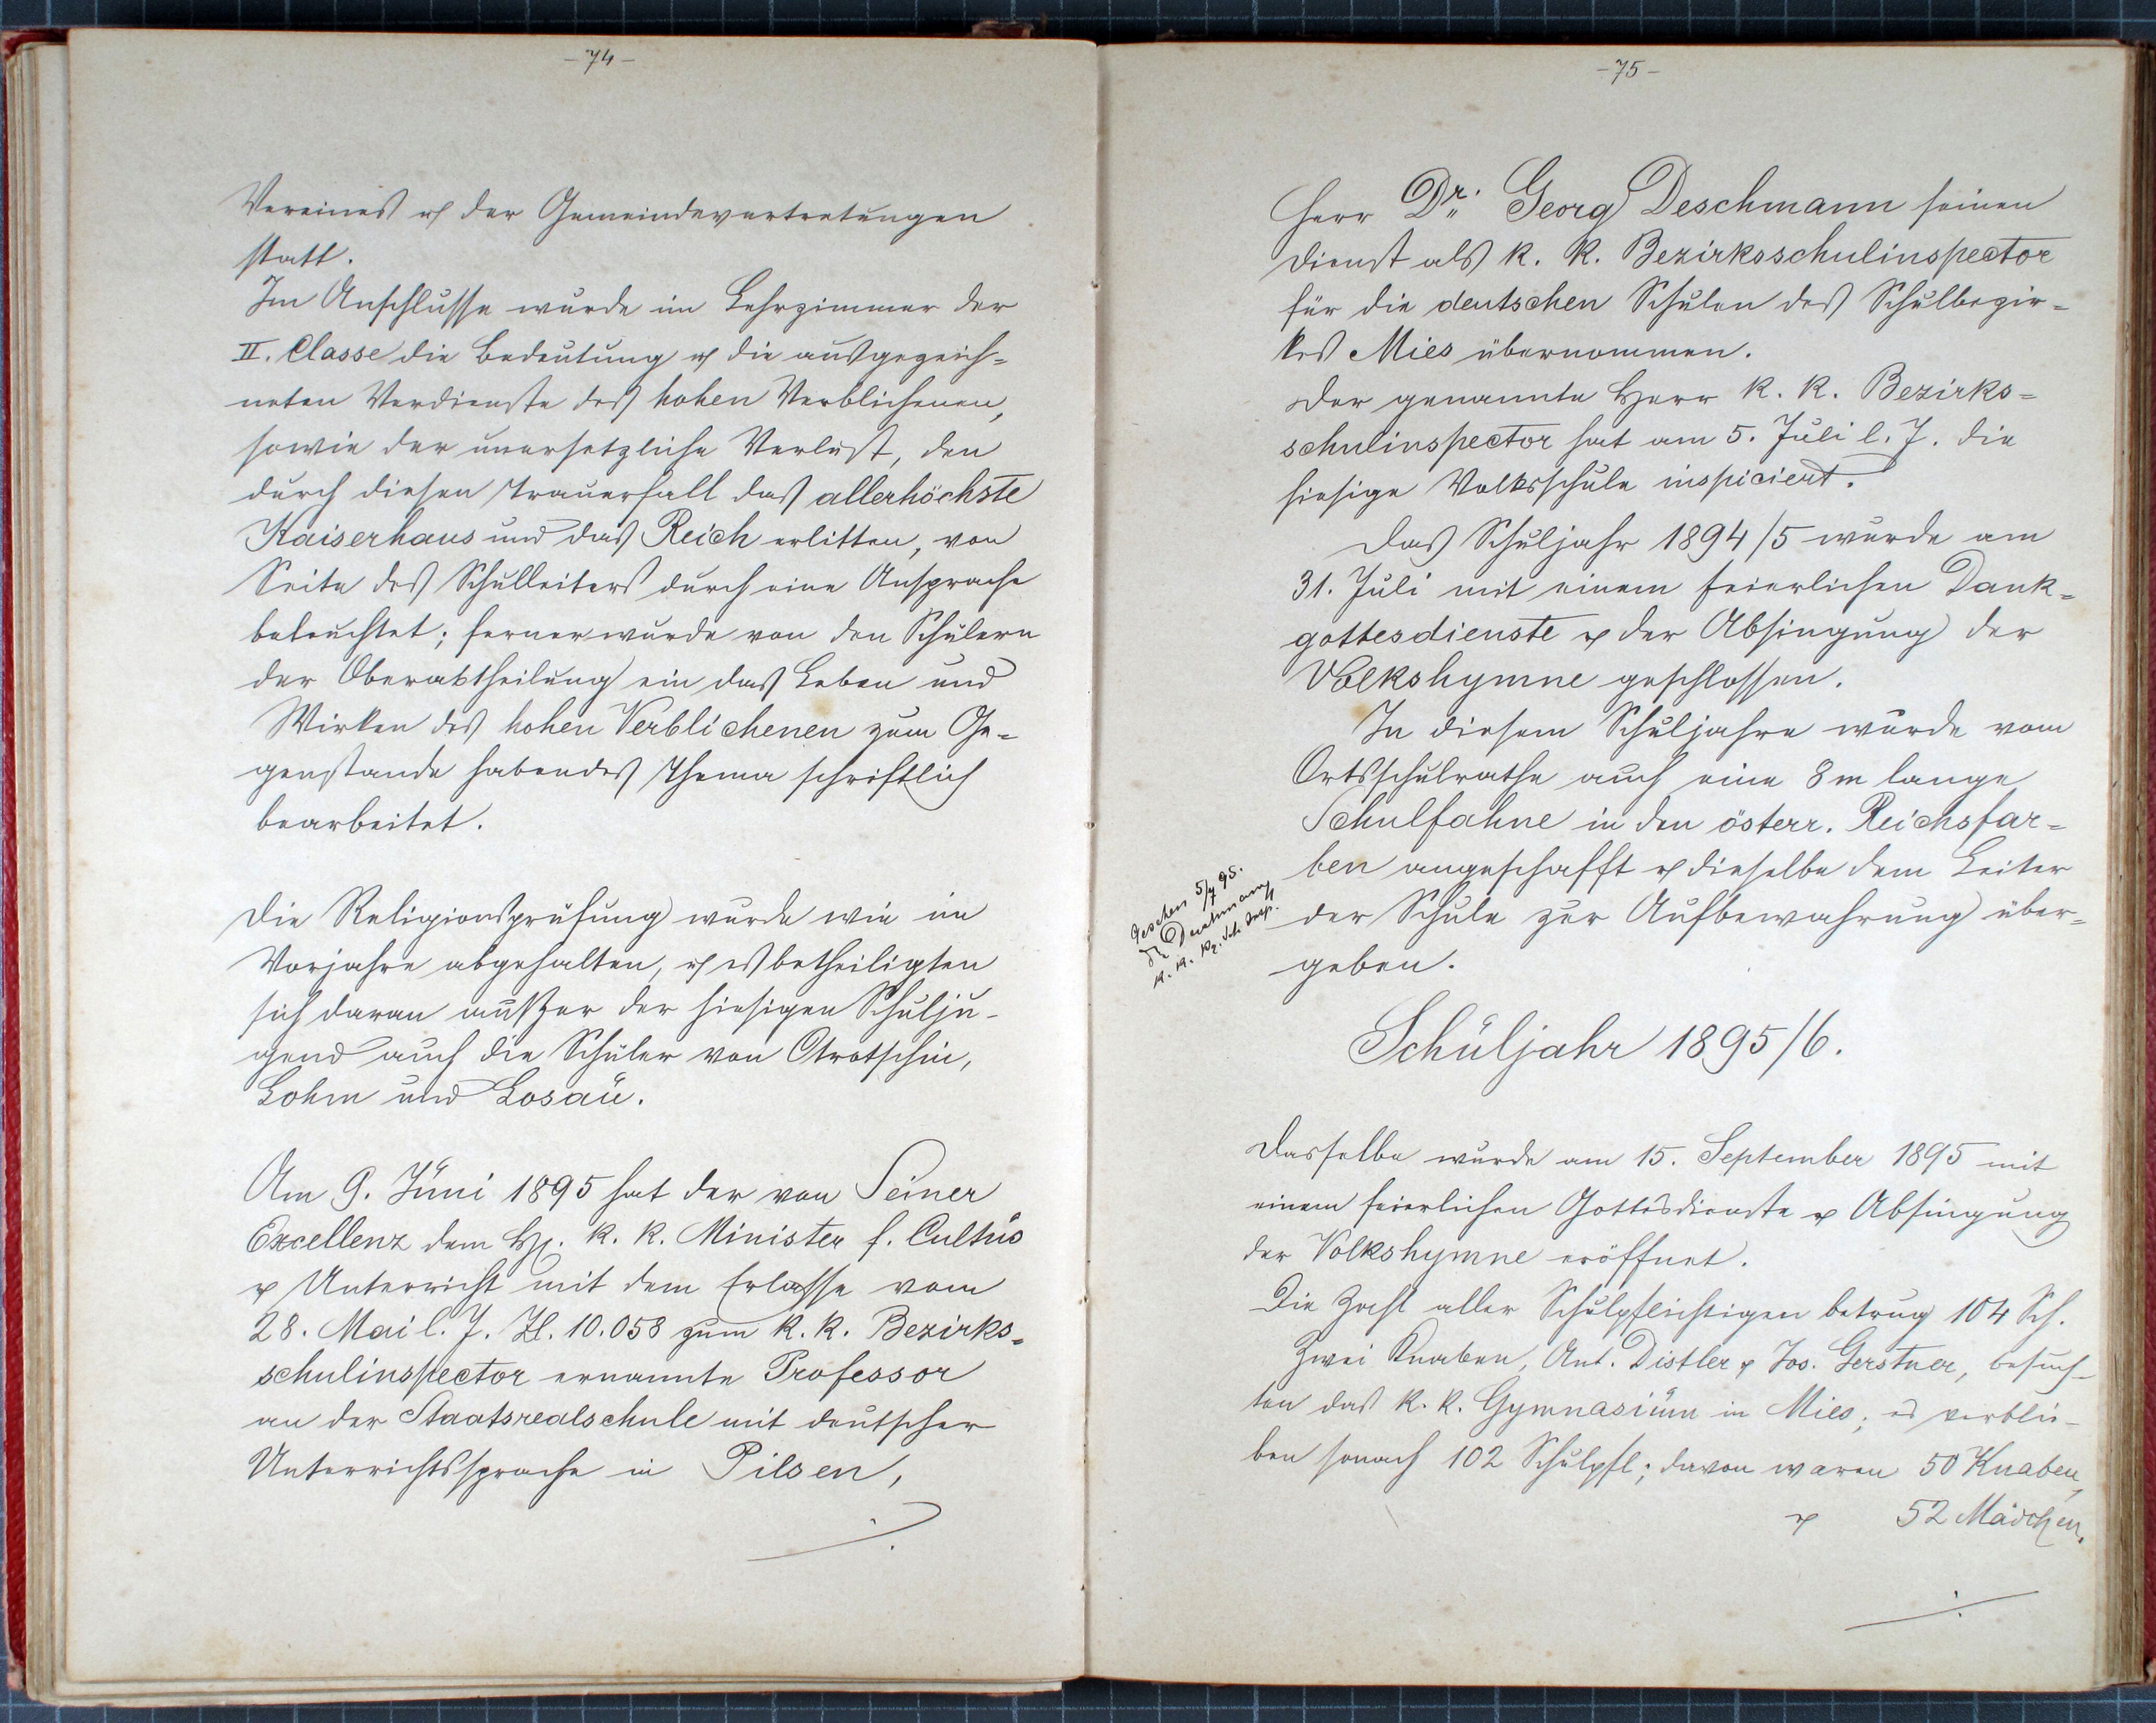 - 74 -
Vereines u. der Gemeindevertretungen
statt.
Im Anschlusse wurde im Lehrzimmer der
II. Classe die Bedeutung u. die ausgezeich=
neten Verdienste des hohen Verblichenen,
sowie der unersetzliche Verlust, den
durch diesen Trauerfall das allerhöchste
Kaiserhaus und das Reich erlitten, von
Seite des Schulleiters durch eine Ansprache
beleuchtet; ferner wurde von den Schülern
der Oberabtheilung ein das Leben und
Wirken des hohen Verblichenen zum Ge=
genstande habendes Thema schriftlich
bearbeitet.
Die Religionsprüfung wurde wie im
Vorjahre abgehalten, u. es betheiligten
sich daran außer der hiesigen Schulju-
gend auch die Schüler von Otrotschin,
Lohm und Losau.
Am 9. Juni 1895 hat der von Seiner
Excellenz dem H. k. k. Minister f. Cultus
u. Unterricht mit dem Erlasse vom
28. Mai l. J. Zl. 10.058 zum k. k. Bezirks=
schulinspector ernannte Professor
an der Staatsrealschule mit deutscher
Unterrichtssprache in Pilsen,
./.
- 75 -
Herr Dr. Georg Deschmann seinen
Dienst als k. k. Bezirksschulinspector
für die deutschen Schulen des Schulbezir=
kes Mies übernommen.
Der genannte Herr k. k. Bezirks=
schulinspector hat am 5. Juli l. J. die
hiesige Volksschule inspiciert.
Das Schuljahr 1894/5 wurde am
31. Juli mit einem feierlichen Dank=
gottesdienste u. der Absingung der
Volkshymne geschlossen.
In diesem Schuljahre wurde vom
Ortsschulrathe auch eine 8 m lange
Schulfahne in den österr. Reichsfar=
ben angeschafft u. dieselbe dem Leiter
der Schule zur Aufbewahrung über=
geben.
Gesehen 5/7 95.
Dr Deschmann
k. k. Bz. Sch. Insp.
Schuljahr 1895/6.
Dasselbe wurde am 15. September 1895 mit
einem feierlichen Gottesdienste u. Absingung
der Volkshymne eröffnet.
Die Zahl aller Schulpflichtigen betrug 104 Sch.
Zwei Knaben, Ant. Distler u. Jos. Gerstner, besuch-
ten das k. k. Gymnasium in Mies; es verblie-
ben sonach 102 Schulpfl.; davon waren 50 Knaben,
u. 52 Mädchen.
./.